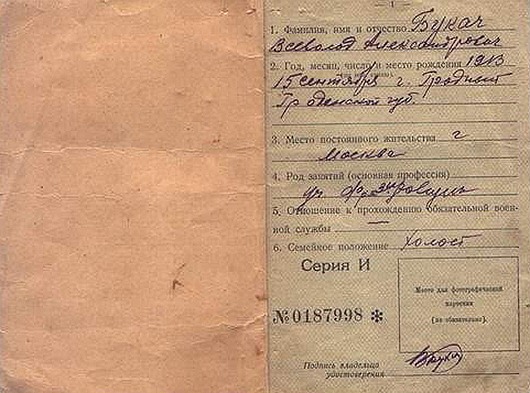 — 1 —
1. Фамилия, имя и отчество Букач
Всеволод Александрович
2. Год, месяц, число и место рождения 1913
15 сентября г.
Гр од енской губ.
3. Место постоянного жительства г
Москва
4. Род занятий (основная профессия)
уч.
5. Отношение к прохождению обязательной воен-
ной службы —
6. Семейное положение холост
Серия И
№ 0187998 *
Место для фотографической
карточки
(не обязательно).
Подпись владельца
удостоверения